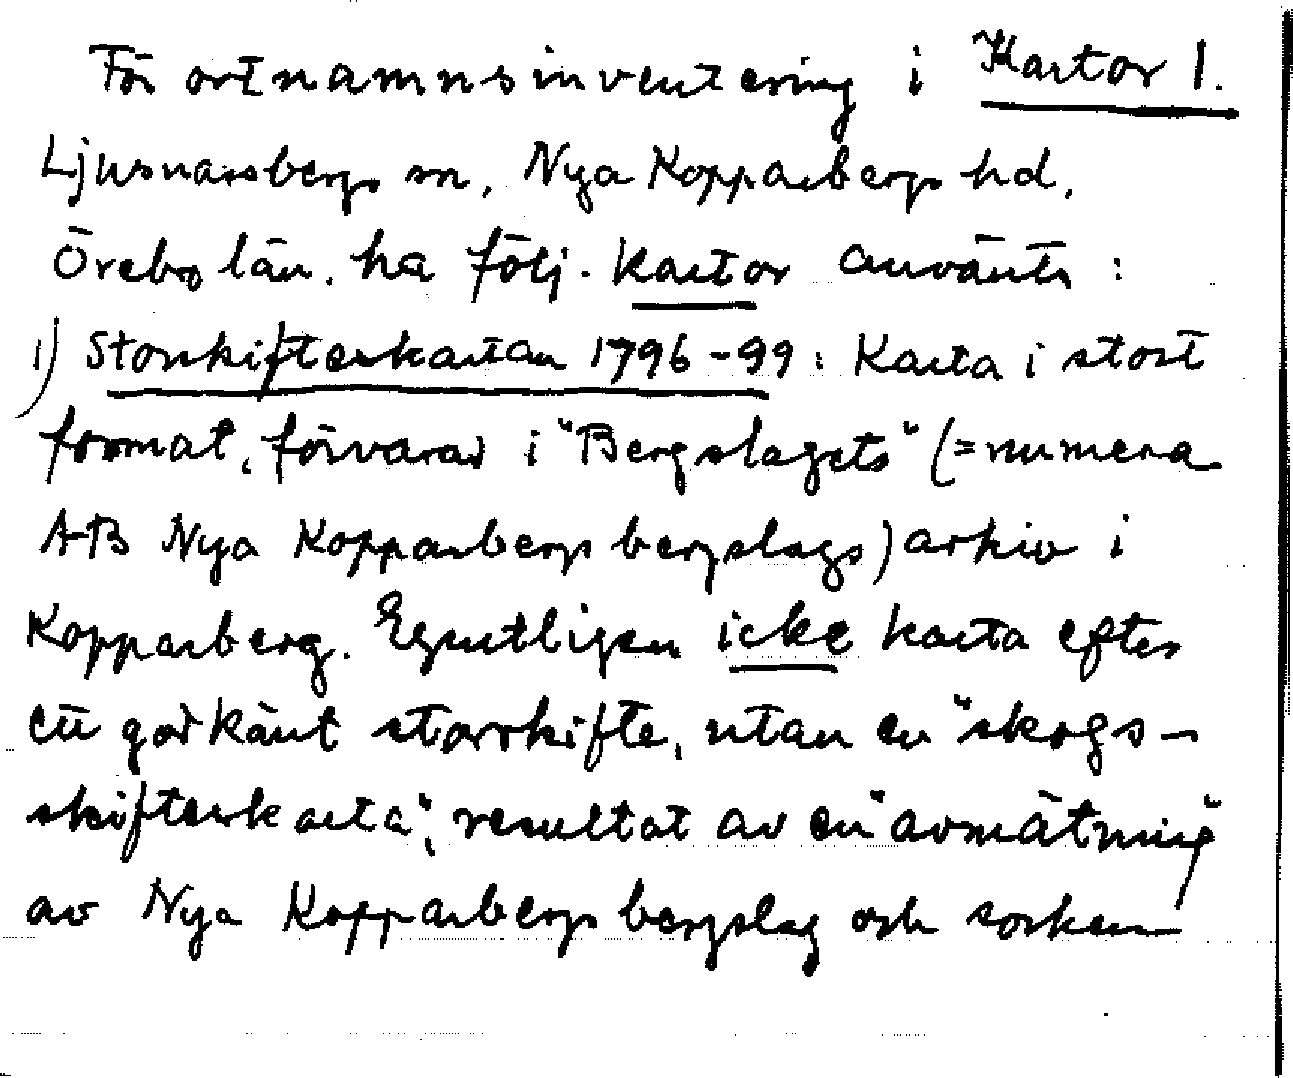 För ortnamnsinventering i Kartor 1.
Ljusnarsbergs sn, Nya Kopparbergs hd,
Örebro län, ha följ. kartor använts:
1) Storskifteskartan 1796-99: Karta i stort
format, förvarad i "Bergslagets" (= numera
AB Nya Kopparbergs bergslags) arkiv i
Kopparberg. Egentligen icke karta efter
ett godkänt storskifte, utan en "skogs-
skifteskarta", resultat av en "avmätning"
av Nya Kopparbergs bergslag och socken